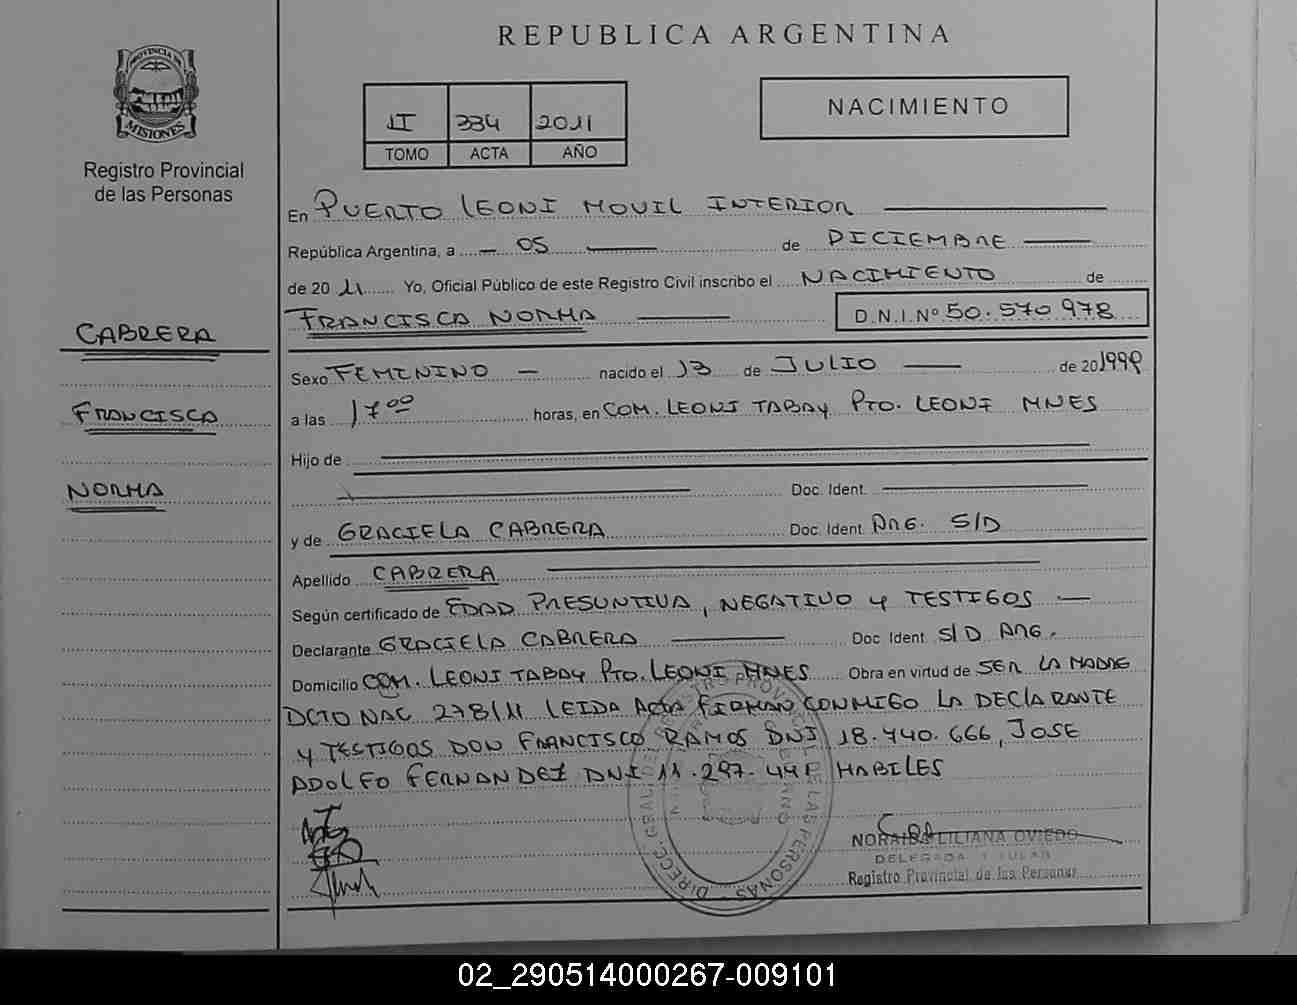 REPUBLICA ARGENTINA
PROVINCIA DE
MISIONES
Registro Provincial
de las Personas
II 334 2011
TOMO ACTA AÑO
NACIMIENTO
En PUERTO LEONI MOVIL INTERIOR
República Argentina, a 05 de DICIEMBRE
de 20 11 Yo, Oficial Público de este Registro Civil inscribo el NACIMIENTO de
FRANCISCA NORMA D.N.I.Nº 50.570.978
CABRERA
FRANCISCA
NORMA
Sexo FEMENINO nacido el 13 de JULIO de 20 1999
a las 17 00 horas, en COM. LEONI TABAY PTO. LEONI MNES
Hijo de
Doc. Ident.
y de GRACIELA CABRERA Doc. Ident. ARG. S/D
Apellido CABRERA
Según certificado de EDAD PRESUNTIVA, NEGATIVO Y TESTIGOS
Declarante GRACIELA CABRERA Doc. Ident. S/D ARG.
Domicilio COM. LEONI TABAY PTO. LEONI MNES Obra en virtud de SER LA MADRE
DCTO NAC 278/11 LEIDA ACTA FIRMAN CONMIGO LA DECLARANTE
Y TESTIGOS DON FRANCISCO RAMOS DNI 18.440.666, JOSE
ADOLFO FERNANDEZ DNI HABILES
NORAIBA LILIANA OVIEDO
DELEGADA TITULAR
Registro Provincial de las Personas
02_290514000267-009101